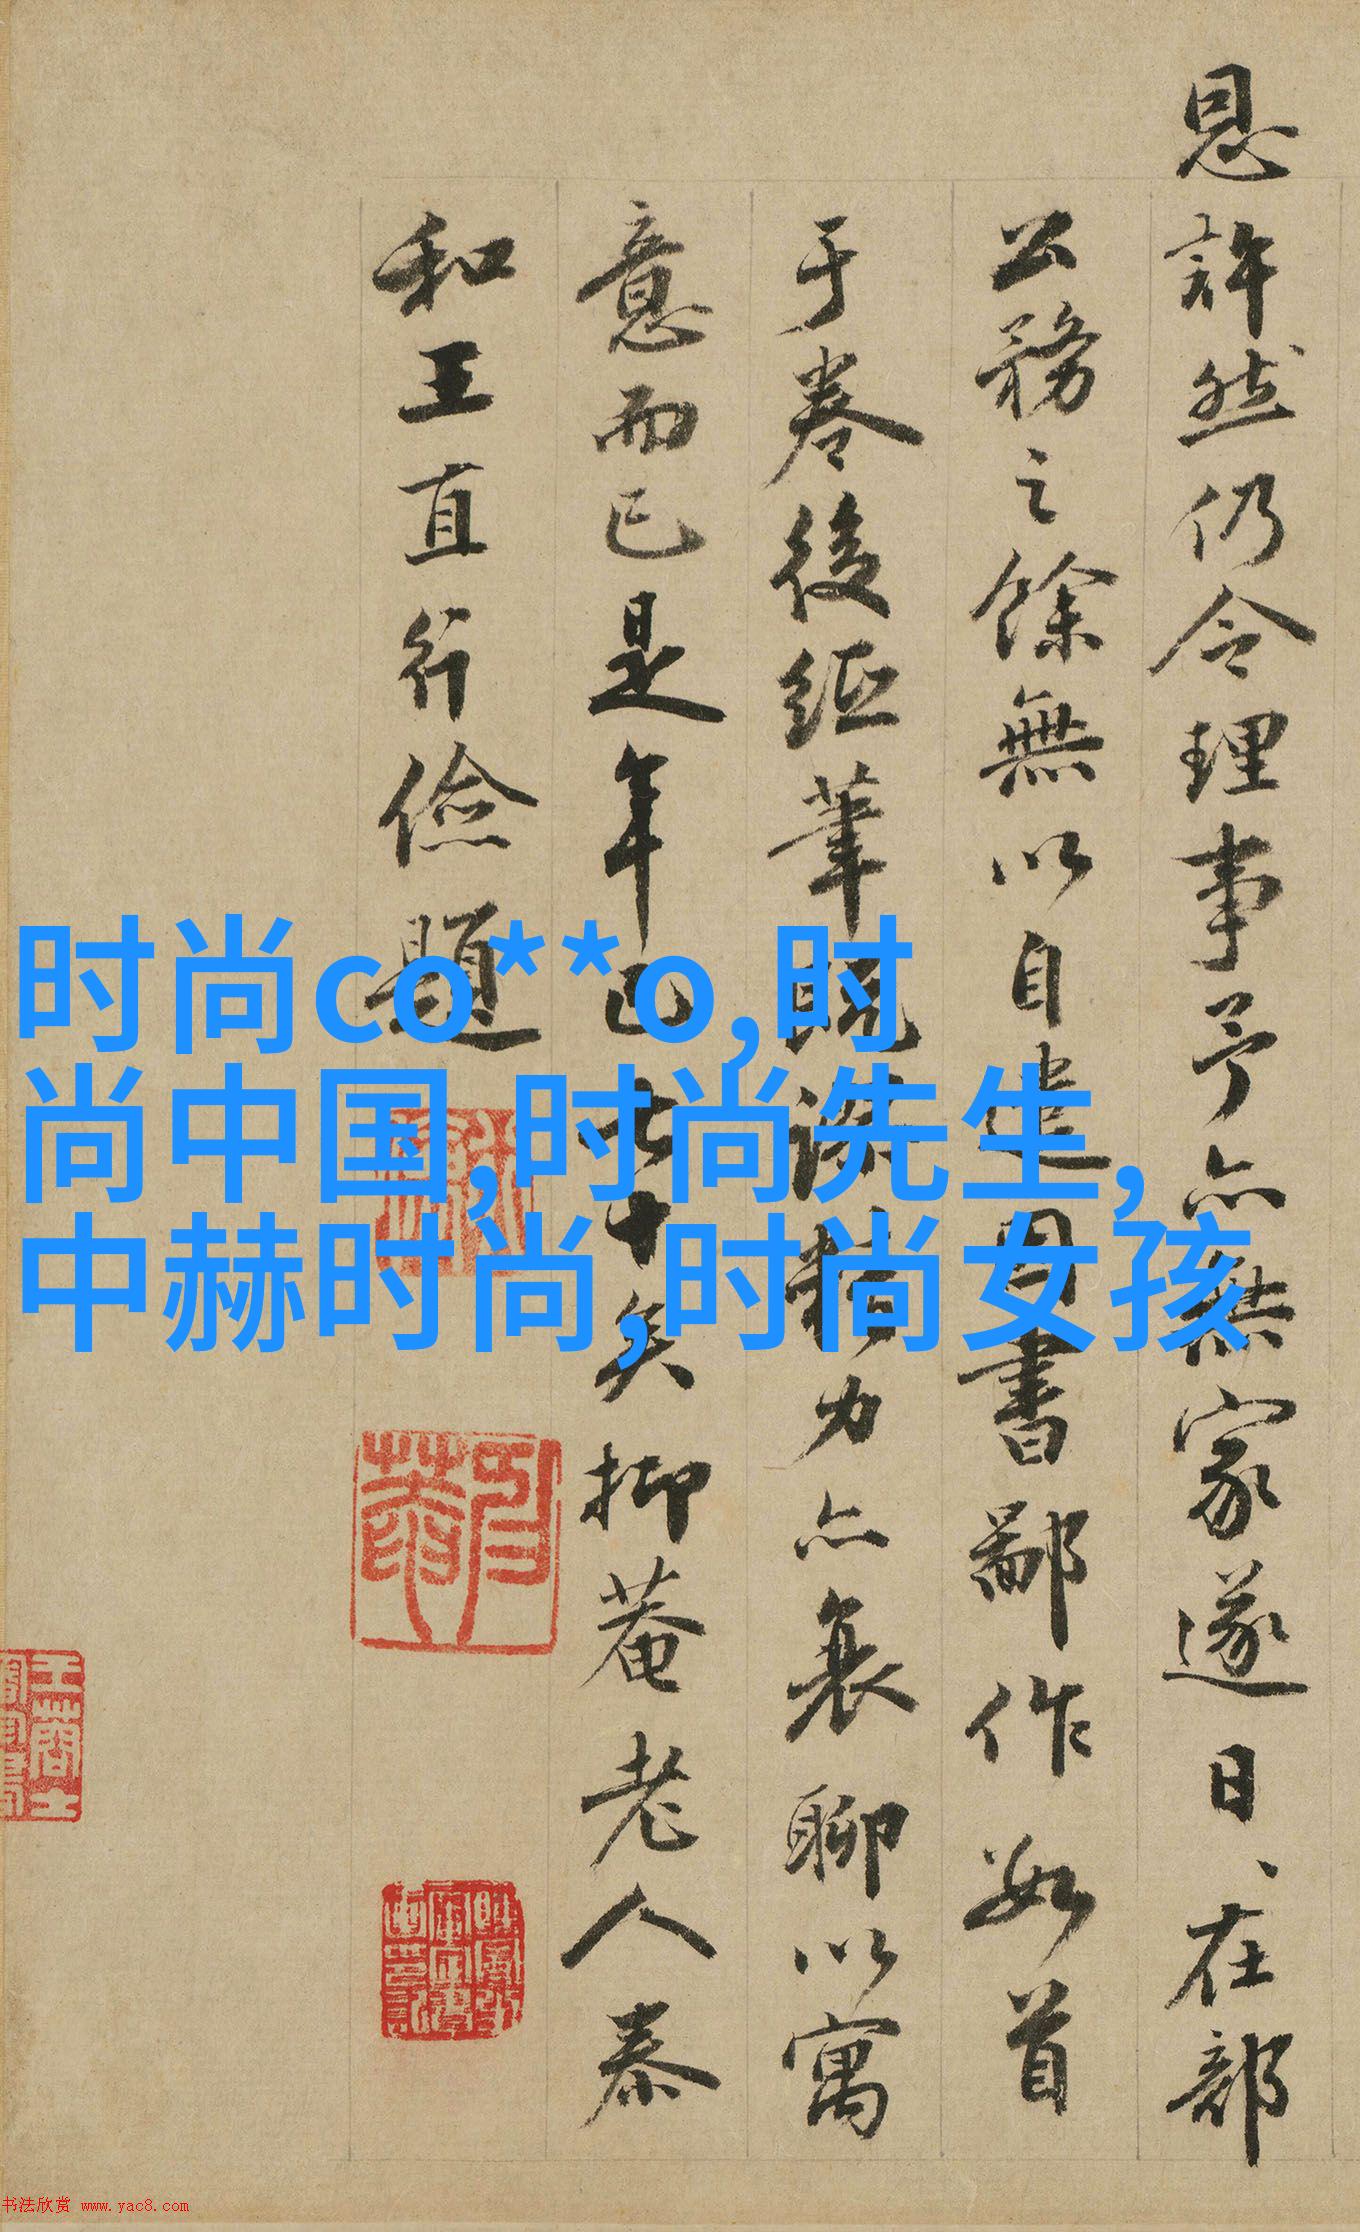 恩許然仍令理事予亦無家遂日、在部
公務之餘無以自遣因書鄙作數首
于卷後紙筆既精力亦衰聊以寓
意而已是年已七十矣抑菴老人泰
和王直行儉題
时尚co**o,时
尚中国,时尚先生,
中赫时尚,时尚女孩
书法欣赏 www.yac8.com